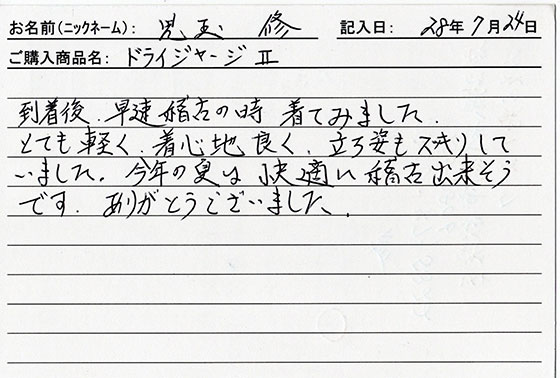 お名前(ニックネーム): 児玉 修 記入日: 28年7月24日
ご購入商品名: ドライジャージⅡ
到着後、早速稽古の時 着てみました。
とても軽く、着心地良く、立ち姿もスッキリして
いました。今年の夏は快適に稽古出来そう
です。ありがとうございました。